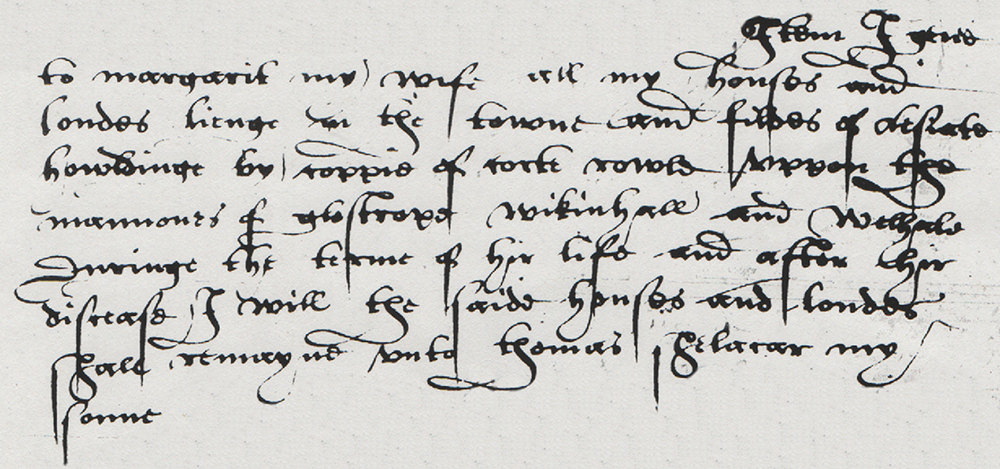 Item I geve
to margarit my wife all my houses and
londes lienge in the towne and fildes of
howldinge by coppie of corte rowle uppon the
mannours of glostrope wikinhall and Welhale
Duringe the terme of hir life and after hir
discease I will the saide houses and londes
shall remayne unto thomas shelacar my
sonne